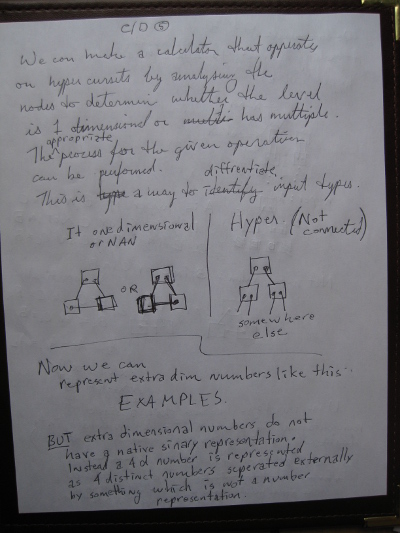 C/D ⑤
We can make a calculator that opperates
on hyper cursits by analysing the
nodes to determin whether the level
is 1 dimensional or has multiple.
The appropriate process for the given operation
can be performed.
This is a way to differentiate input types.
If one dimensional
or NAN
OR
Hyper (Not
connected)
somewhere
else.
Now we can
represent extra dim numbers like this..
EXAMPLES.
BUT extra dimensional numbers do not
have a native sinary representation.
Instead a 4d number is represented
as 4 distinct numbers seperated externally
by something which is not a number
representation.